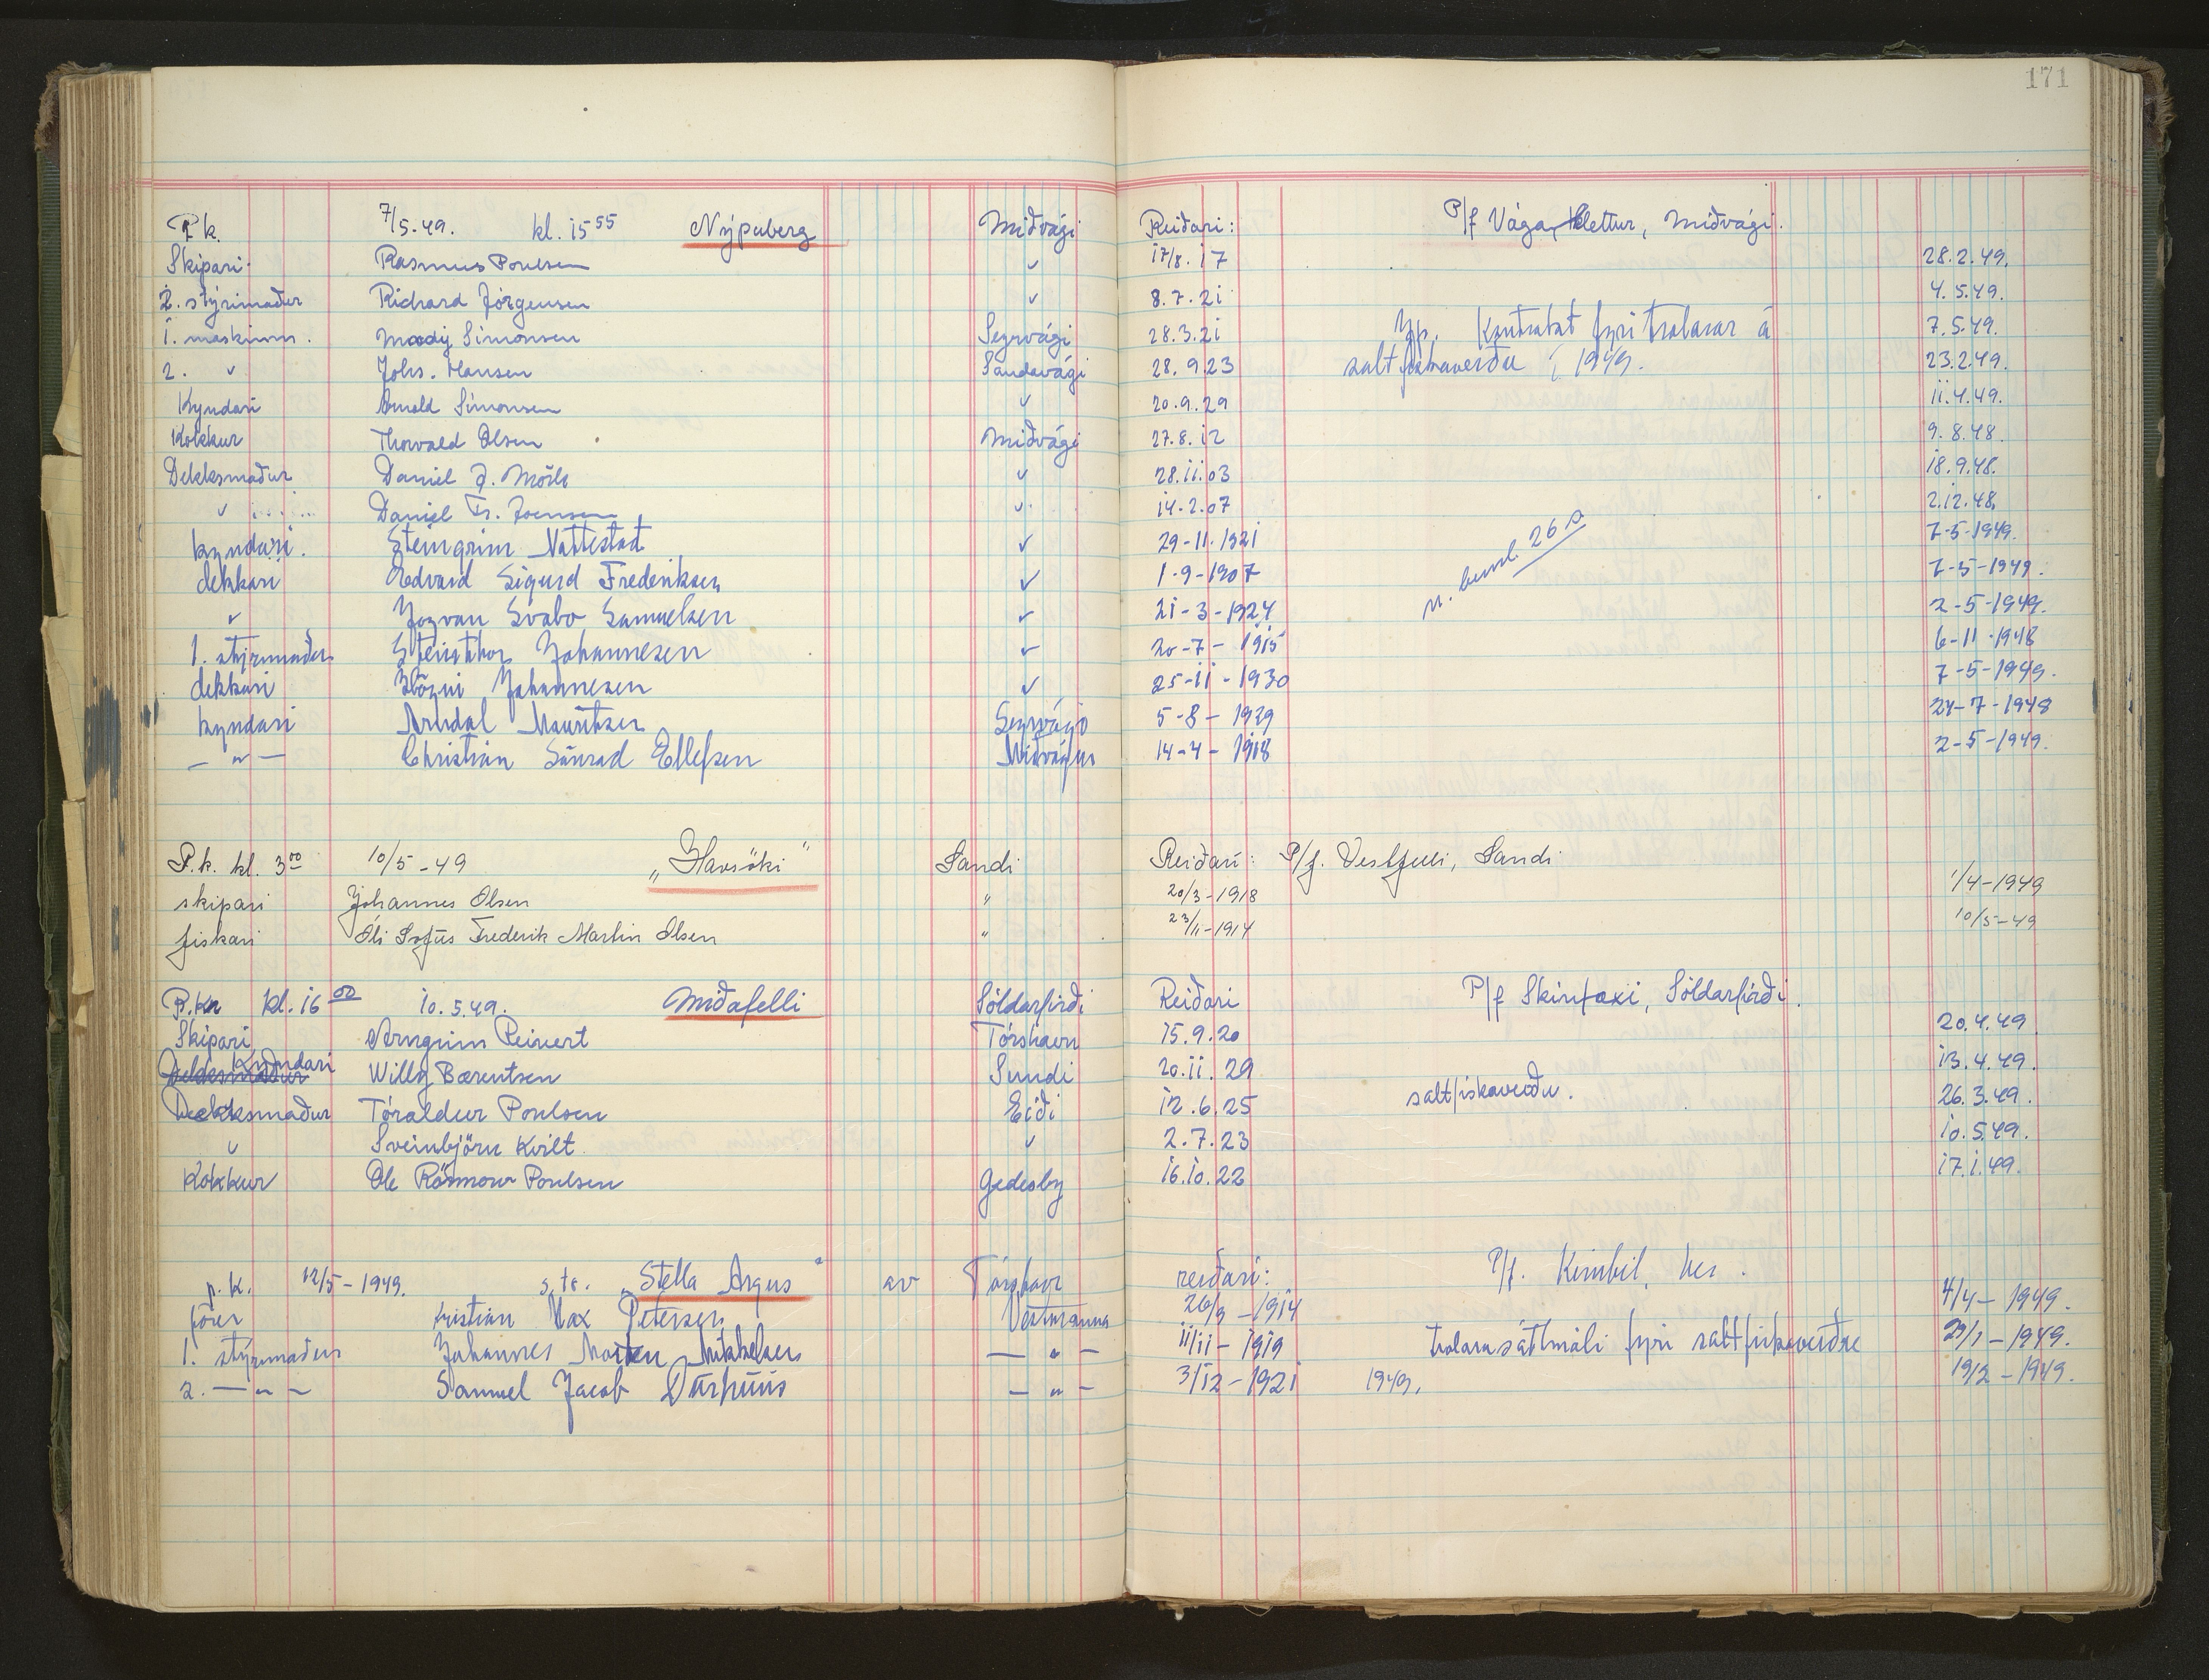 171
P.k. 7/5.49. kl. 15 55 Nýpuberg Miðvági Reiðari: P/f Vága Klettur, Miðvági.
Skipari Rasmus Poulsen ✓ 17/8.17 28.2.49.
2. stýrimaður Richard Jörgensen ✓ 8.7.21 4.5.49.
1. maskinm. Mady Simonsen Seyrvági 28.3.21 Kontrakt fyri trolarar á 7.5.49.
2. ✓ Johs. Hansen Sandavági 28.9.23 saltfiskaveiðu í 1949. 23.2.49.
Kyndari Arnold Simonsen ✓ 20.9.29 11.4.49.
Kokkur Thorvald Olsen Miðvági 27.8.12 9.8.48.
Dekksmaður Daniel J. ✓ 28.11.03 18.9.48.
✓ Daniel Fr. Joensen ✓ 14.2.07 2.12.48.
kyndari. Steingrim Nattestad ✓ 29-11-1921 7-5-1949.
dekkari Edvard Sigurd Frederiksen ✓ 1-9-1907 26 7-5-1949.
✓ Jógvan Svabo Samuelsen ✓ 21-3-1924 2-5-1949.
1. stýrimaður Steinthor Johannesen ✓ 20-7-1915 6-11-1948
dekkari Høgni Johannesen ✓ 25-11-1930 7-5-1949.
kyndari Arndal Mouritsen Seyrvági 5-8-1929 24-7-1948
— " — Christian Sünrad Ellefsen Miðvágur 14-4-1918 2-5-1949.
P.k. kl. 3 00 10/5-49 „Havsöki" Sandi Reiðari: P/f. Vestfelli, Sandi
skipari Johannes Olsen " 20/3-1918 1/4-1949
fiskari Óli Sofus Frederik Martin Olsen " 23/11-1914 10/5-49
P.k. kl. 16 00 10.5.49. Miðafelli Söldarfirði Reiðari P/f Skinfaxi, Söldarfirði.
Skipari Arngrim Reinert Tórshavn 15.9.20 20.4.49
Dekksmaður Kyndari Willy Bærentsen Sundi 20.11.29 13.4.49.
Dekksmaður Tóraldur Poulsen Eiði 12.6.25 saltfiskaveiðu. 26.3.49.
✓ Sveinbjörn Kvilt ✓ 2.7.23 10.5.49.
Kokkur Ole Rósmour Poulsen Gedesby 16.10.22 17.1.49.
p.k. 12/5-1949. s.tr. „Stella Argus" av Tórshavn reiðari: P/f. Kimbil, Nes.
förer Kristian Max Petersen Vestmanna 26/9-1914 4/4-1949.
1. stýrimaður Johannes Morten Mikkelsen — " — 11/11-1919 trolarasáttmáli fyri saltfiskaveiðu 29/1-1949.
2. — " — Samuel Jacob Dürhuus — " — 3/12-1921 1949. 19/2-1949.